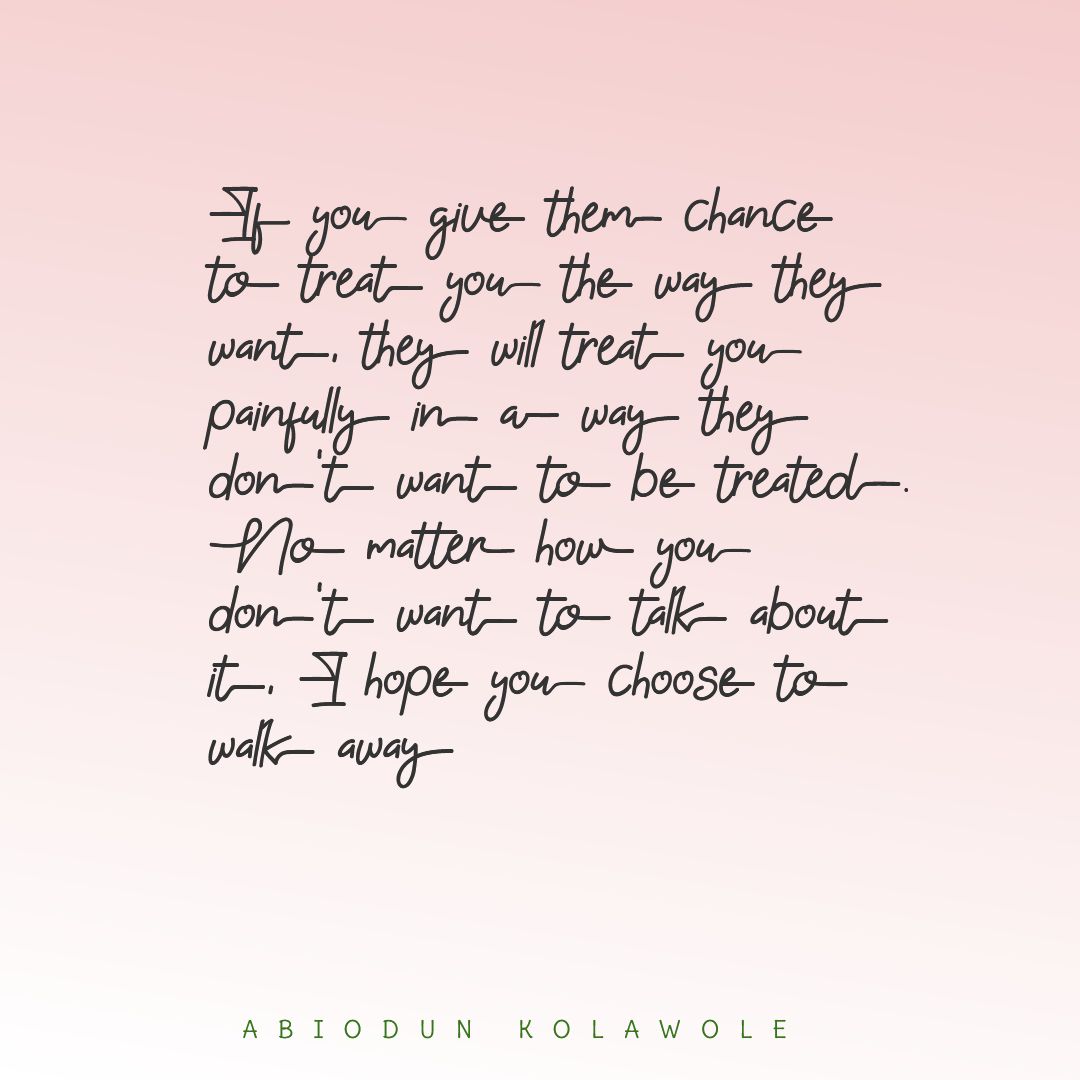 If you give them chance
to treat you the way they
want, they will treat you
painfully in a way they
don't want to be treated.
No matter how you
don't want to talk about
it, I hope you choose to
walk away
ABIODUN KOLAWOLE